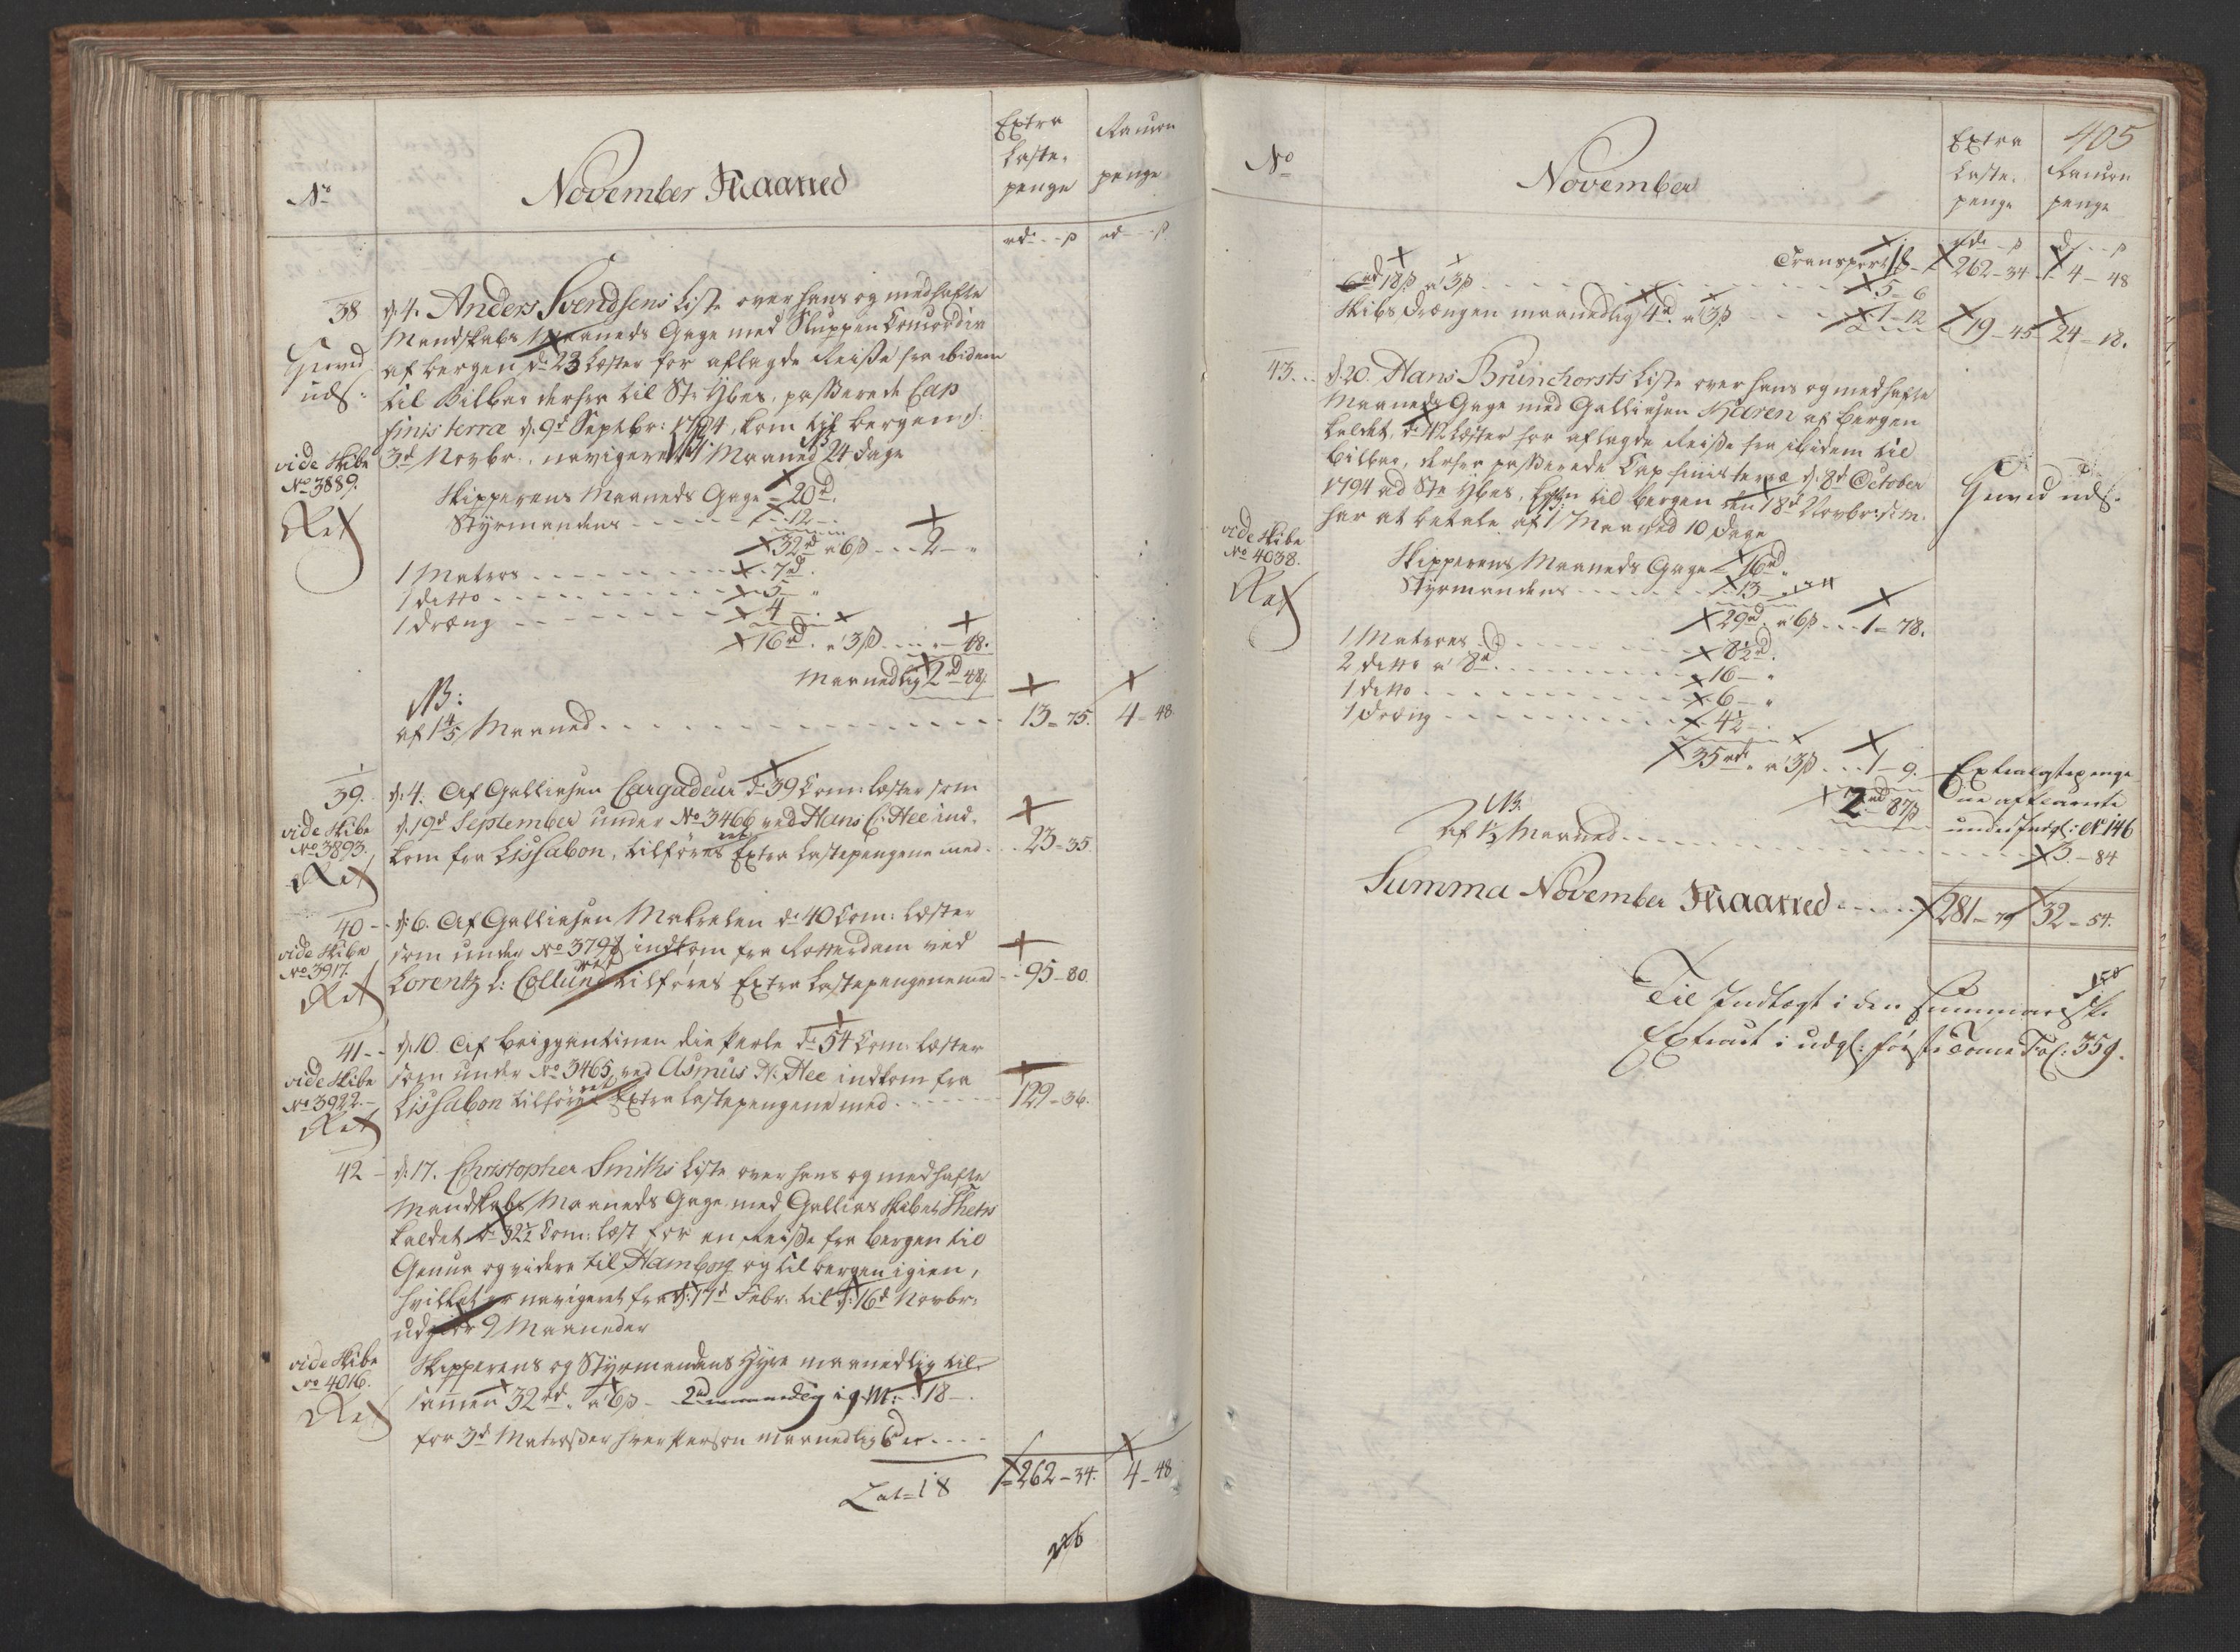 No
November Maaned
Extra
Laste-
penge
Rantzon
penge
rdr - ß
rd - ß
38
d: 4. Anders Svendsens Liste over hans og medhafte
Mandskabs Maaneds Gage med Sluppen Concordia
af bergen dr 23 Læster for aflagde Reise fra ibidem
til Bilbao derfra til St: Ybes, passerede Cap
finis terræ d: 9d Septbr: 1794, kom til bergen d:
3d Novbr: navigeret 1 Maaned 24 dage
vide Skibe
No 3889.
Ret
Skipperens Maaneds Gage = 20d.
Styrmandens - - - 12 -
32rd a 6ß - - 2 - "
1 Matros - - - 7d.
1 ditto - - - 5 - "
1 dræng - - - 4 - .
16rd. a 3ß - - 48.
Maanedlig 2rd 48
NB:
af 1 4/5 Maaned - - - 13 = 75. 4 - 48
39.
d: 4. Af Galliasen Cargadeur dr 39 Com: læster som
d: 19d September under No 3466 ved Hans C: Hee ind-
kom fra Lissabon, tilføres Extra Lastepengene med - - 23 = 35
vide Skibe
No 3893.
Ret
40 -
d: 6. Af Galliasen Makrelen dr 40 Com: læster
som under No 3797 indkom fra Rotterdam ved
Lorentz L: Collund tilføres Extra Lastepengene med - - 95 - 80
vide Skibe
No 3917.
Ret
41 - -
d: 10. Af brigantinen die Perle dr 54 Com: læster
som under No 3465 ved Asmus N: Hee indkom fra
Lissabon tilføres Extra Lastepengene med - - - 129 - 36.
vide Skibe
No 3922. -
Ret
42 -
d: 17. Christopher Smiths Liste over hans og medhafte
Mandskabs Maaneds Gage med Gallias Skibet Thetis
kaldet dr 32 1/2 Com: læst for en Reise fra bergen til
Genua og videre til Hamborg og til bergen igien,
hvilket er navigeret fra d: 17d Febr: til d: 16d Novbr:
udgiør 9 Maaneder
vide Skibe
No 4016.
Ret
Skipperens og Styrmandens Hyre maanedlig til-
sammen 32rd. a 6ß - 2rd maanedlig i 9 M: - 18 - .
for 3d Matroser hver Person maanedlig 6d - - -
Lat = 18
262 - 34. 4 - 48
No
November
Extra
Laste-
penge
405
Rantzon
penge
rdr - ß
rd - ß
Transport 18 - 262 - 34 - 4 - 48
6rd 18ß a 3ß - - - 5 = 6
Skibs drængen maanedlig 4d. a 3ß - - - 1 - 12
19 - 45 24 - 18.
43. . .
d: 20. Hans Brunchorsts Liste over hans og medhafte
Maaneds Gage med Galliasen Karen af bergen
kaldet, dr 42 læster for aflagde Reise fra ibidem til
Bilbao, derfra passerede Cap finis terræ d: 8d October
1794 ad Ste Ybes, kom til bergen den 18d Novbr: s: m:
har at betale af 1 Maaned 10 dage
vide Skibe
No 4038.
Ret
Skipperens Maaneds Gage = 16rd "
Styrmandens - - - 13 -
29rd. a 6ß - - 1 = 78.
1 Matros - - - 8 1/2rd.
2 ditto a 8d. - - - 16 - "
1 ditto - - - 6 - "
1 dræng - - - 4 1/2 - .
35rd. a 3ß - - - 1 - 9.
2rd 87ß
NB.
af 1 1/3 Maaned - - -
Extralastepenge
under Indgl: No 146
3 - 84
Summa November Maaned - - - 281 - 79 32 - 54.
Til Indtægt i den Summariske
Extract i udgl: første Tome Fol: 359.